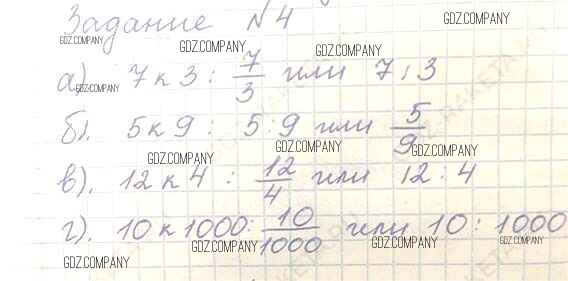 Задание N4
а). 7 к 3 : 7/3 или 7 : 3
б). 5 к 9 : 5 : 9 или 5/9
в). 12 к 4 : 12/4 или 12 : 4
г). 10 к 1000 : 10/1000 или 10 : 1000
GDZ.COMPANY
GDZ.COMPANY
GDZ.COMPANY
GDZ.COMPANY
GDZ.COMPANY
GDZ.COMPANY
GDZ.COMPANY
GDZ.COMPANY
GDZ.COMPANY
GDZ.COMPANY
GDZ.COMPANY
GDZ.COMPANY